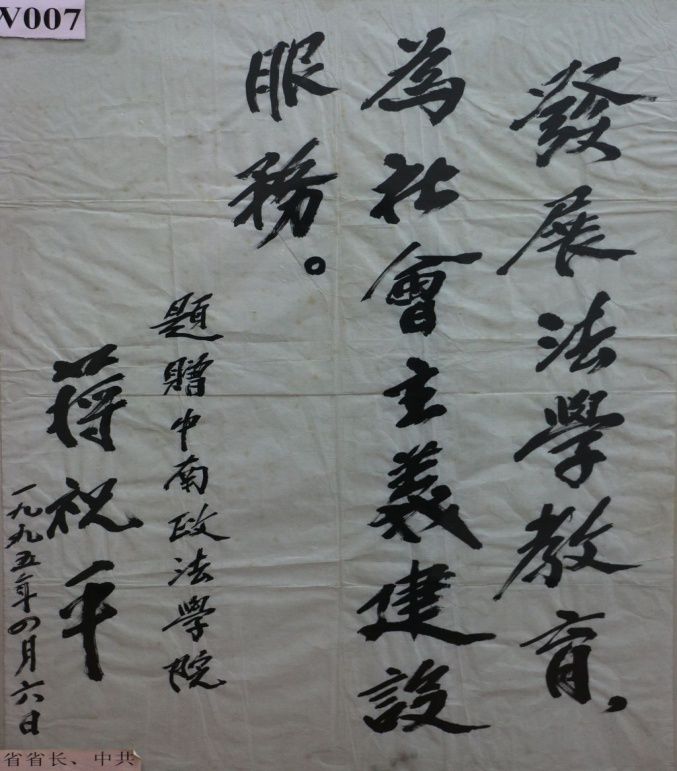 V007
發展法學教育，
為社會主義建設
服務。
題贈中南政法學院
蔣祝平
一九九五年四月六日
省省长、中共